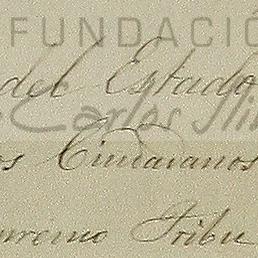 FUNDACIÓ
del Estado
Carlos
os Ciudadanos
upremo Tribu